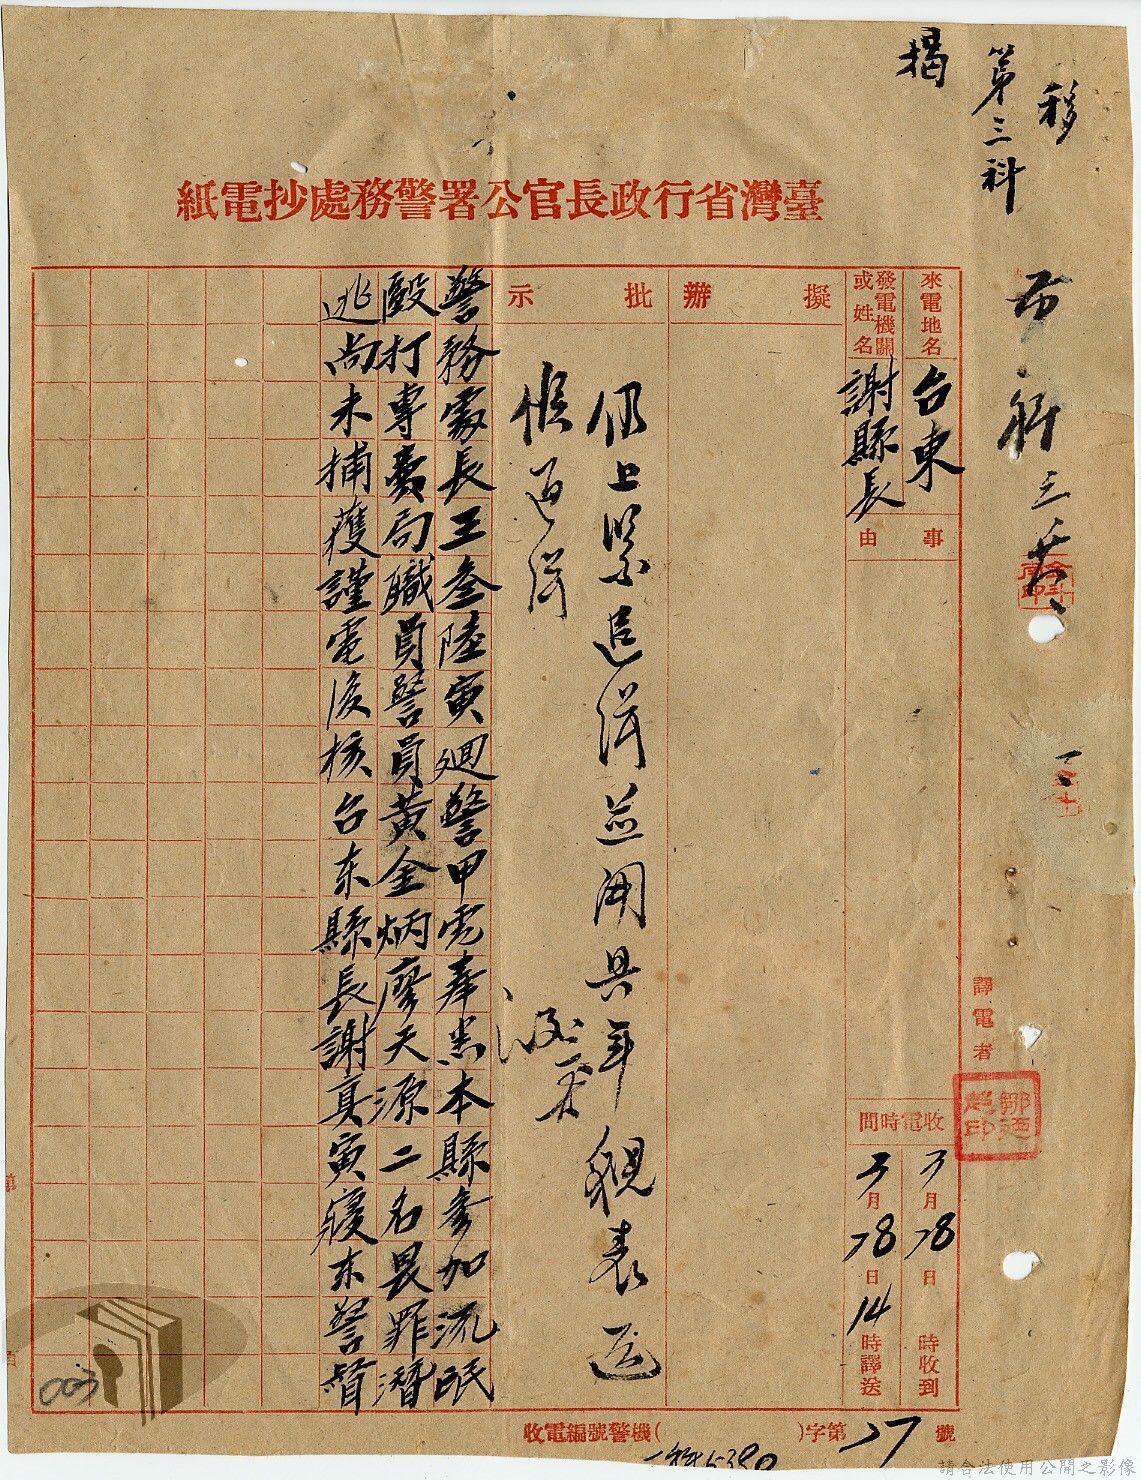 移
第三科
揭
臺灣省行政長官公署警務處抄電紙
來電地名
台東
發電機關或姓名
謝縣長
事由
擬辦
批示
仍上緊追緝並開具年貌表送
候通緝
警務處長王叁陸寅迴警甲電奉悉本縣參加流氓
毆打專賣局職員警員黃金炳廖天源二名畏罪潛
逃尚未捕獲謹電復核台东縣長謝真寅寢东警督
譯電者
收電時間
3月28日 時收到
3月28日14時譯送
收電編號警機( )字第27號
003
請合法使用公開之影像